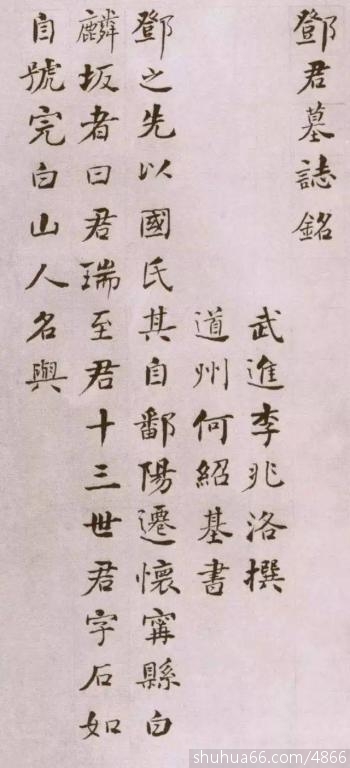 鄧君墓誌銘
武進李兆洛撰
道州何紹基書
鄧之先以國氏其自鄱陽遷懷甯縣白
麟坂者曰君瑞至君十三世君字石如
自號完白山人名與
shuhua66.com/4866